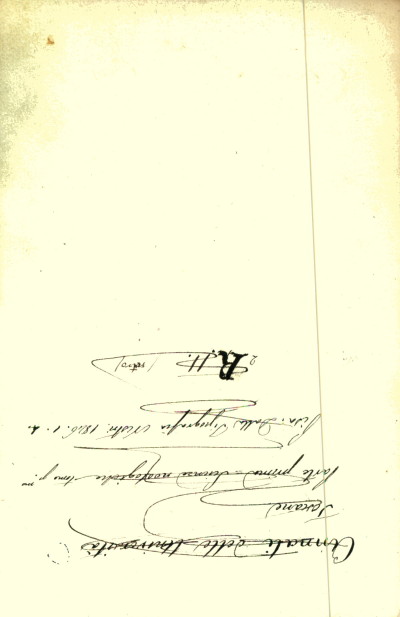 Annali delle Università
Toscane
Parte prima Scienze noologiche tomo p.mo
Pisa: Dalla Tipografia Nistri. 1846. 1. 
R. H. (retro)
2